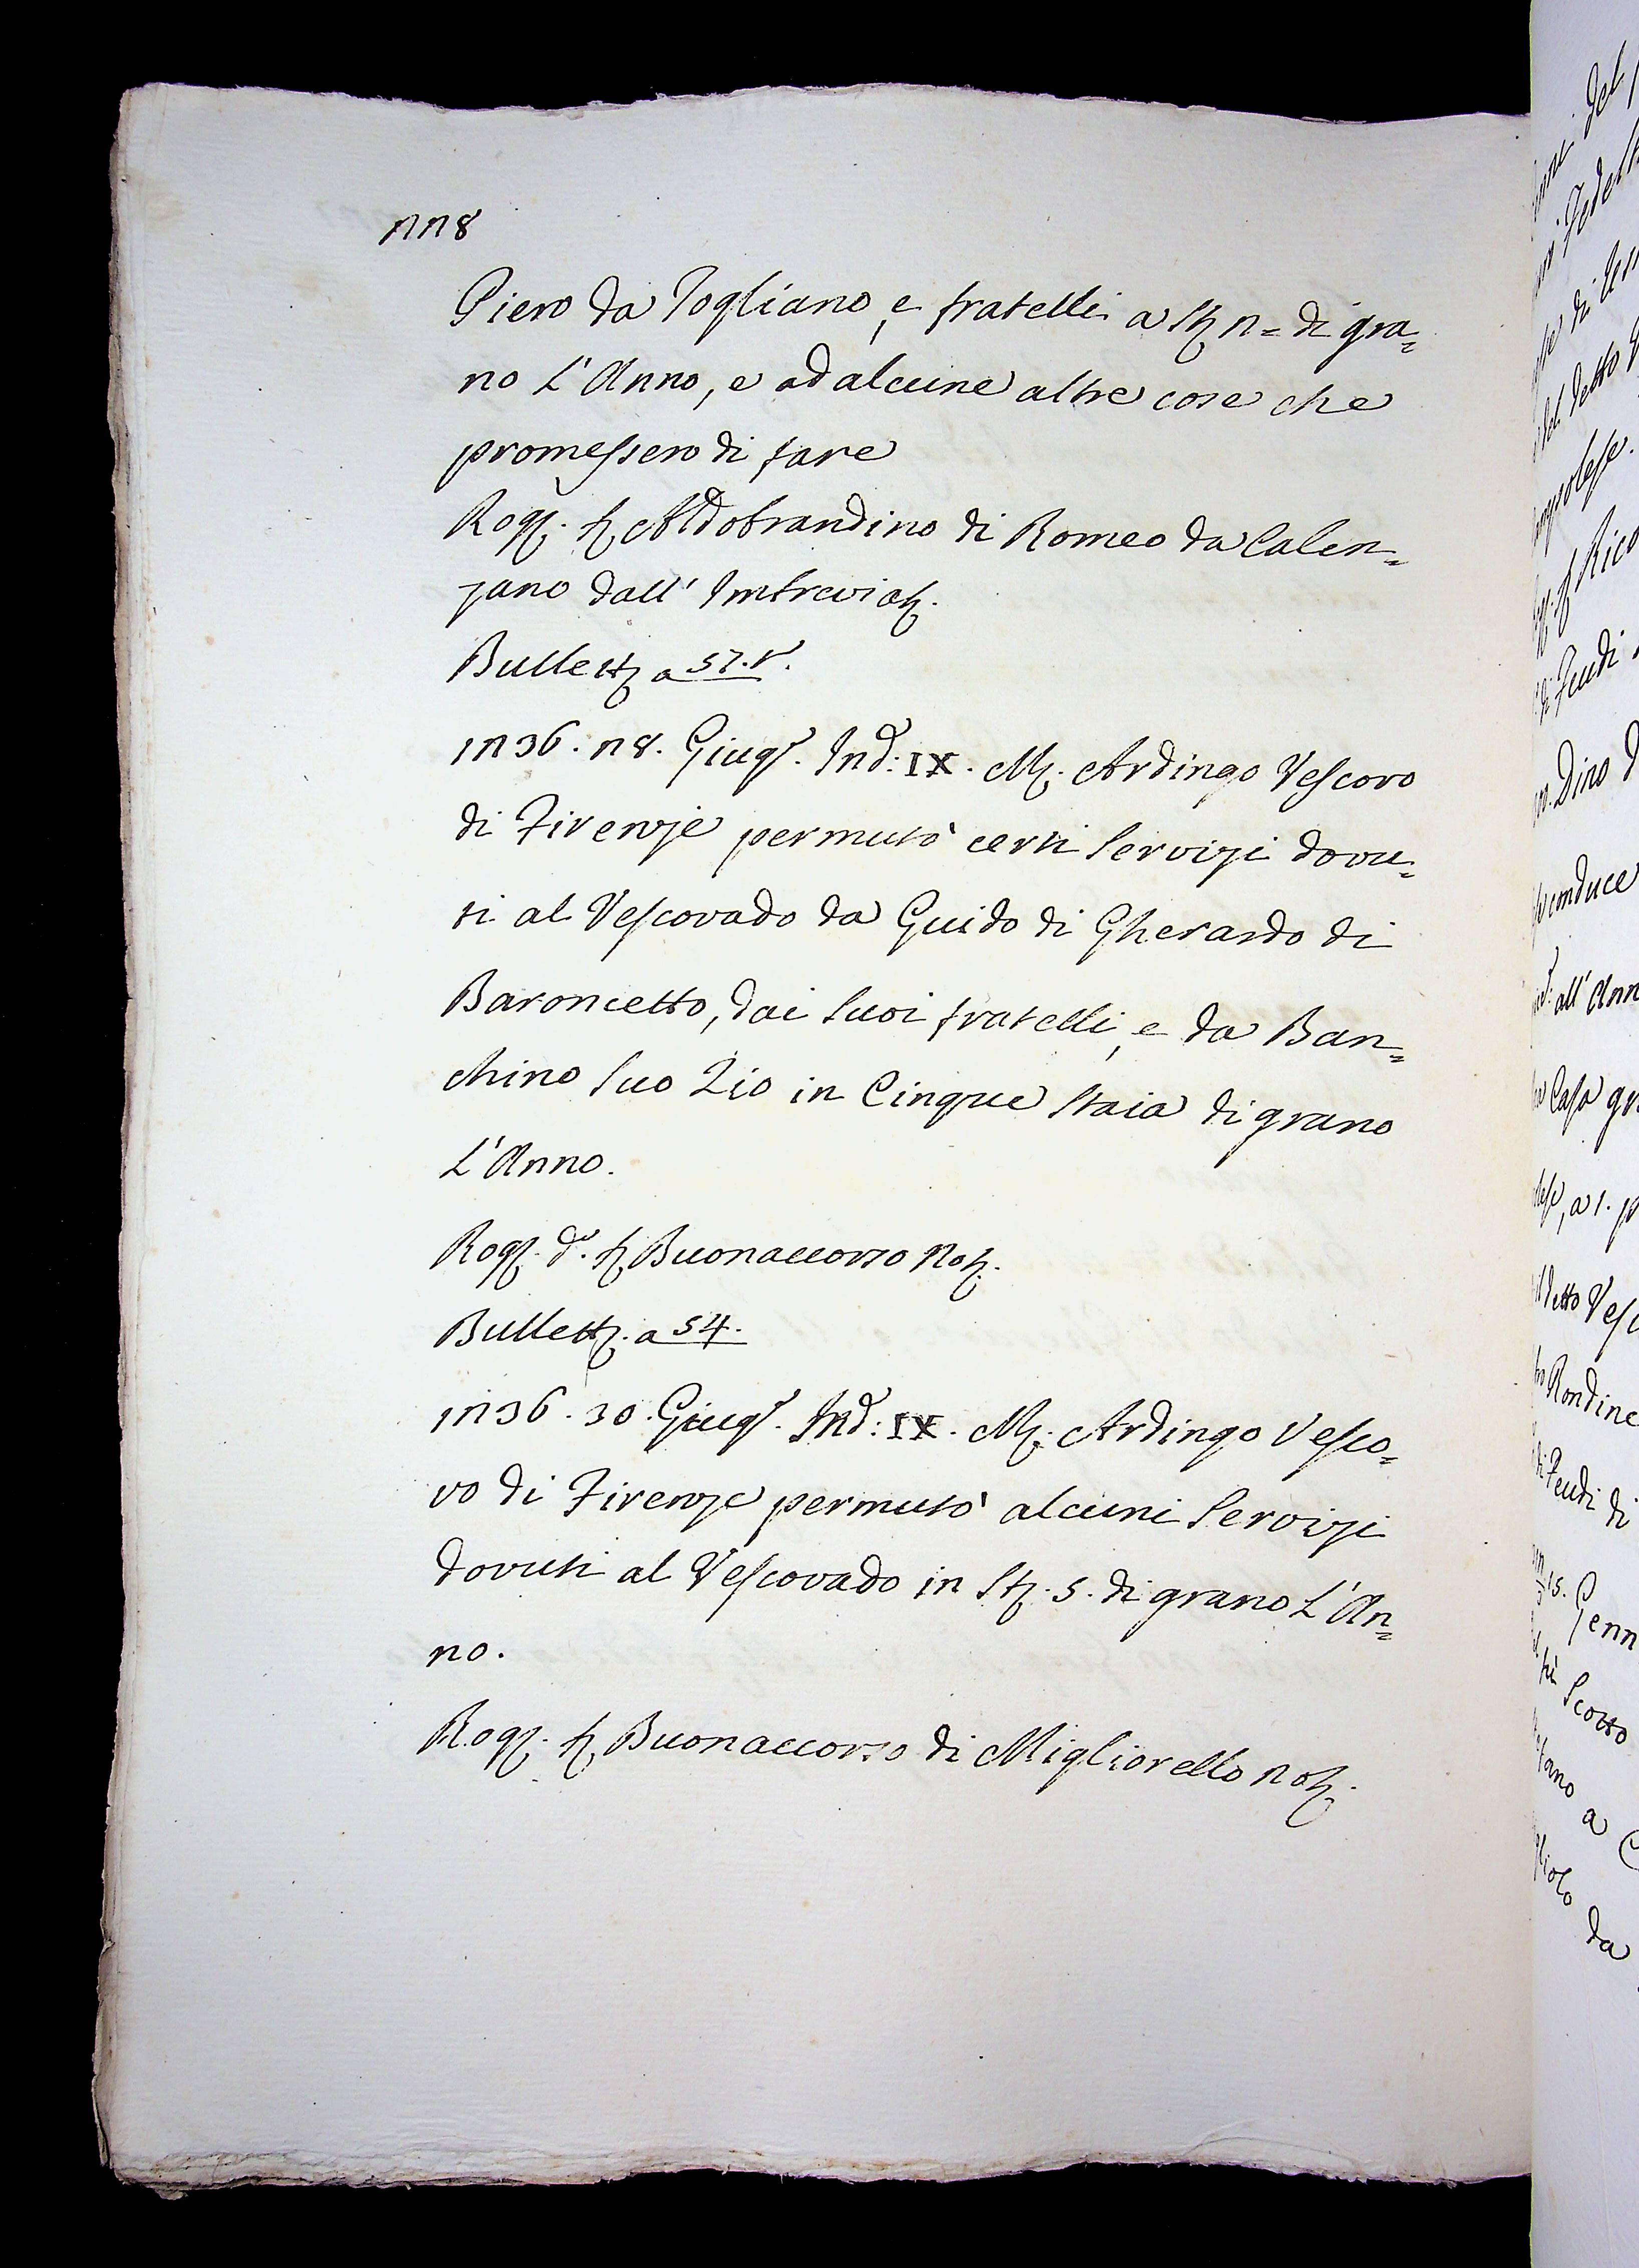 228
Piero da Pogliano, e fratelli a Sta 2= di gra=
no L'Anno, e ad alcune altre cose che
promessero di fare
Rogo. Sr Aldobrandino di Romeo da Calen=
zano dall' Imbreviat.
Bullett a 57.t.
1236. 28. Giugo. Indo: IX. Mr. Ardingo Vescovo
di Firenze permutò certi Servizi dovu=
ti al Vescovado da Guido di Gherardo di
Baroncetto, dai Suoi fratelli, e da Ban=
chino Suo Zio in Cinque Staia di grano
L'Anno.
Rogo. do. Sr Buonaccorso Not.
Bullett. a 54.
1236. 30. Giugo. Indo: IX. Mr. Ardingo Vesco=
vo di Firenze permutò alcuni Servizi
dovuti al Vescovado in Sta. 5. di grano L'An=
no.
Rogo. Sr Buonaccorso di Migliorello Not.